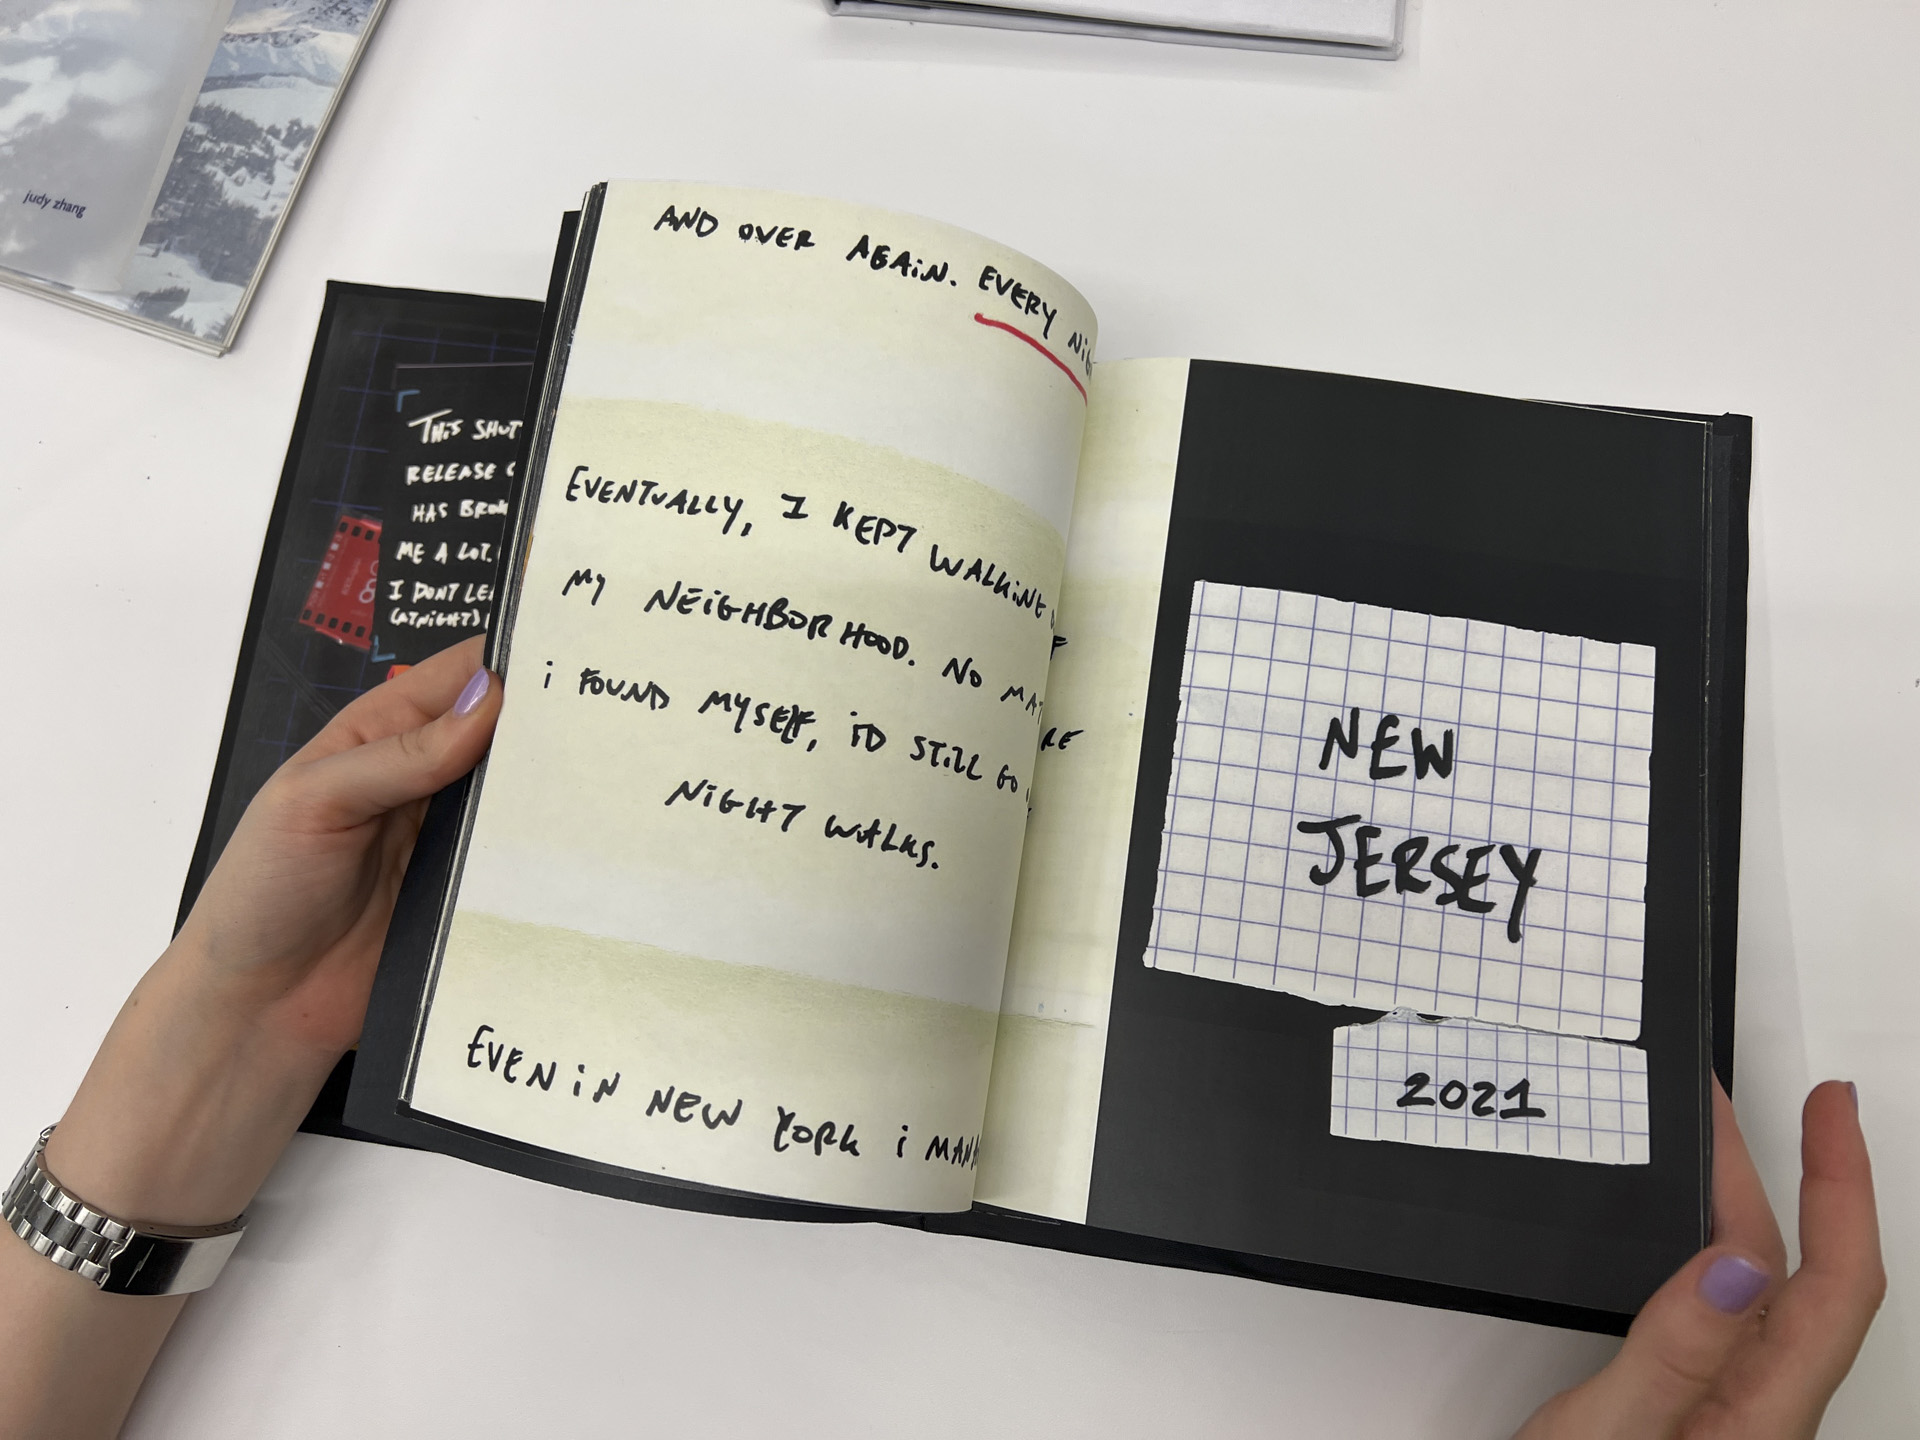 judy zhang
THIS
RELEASE
HAS
ME A LOT.
I DONT
(AT NIGHT)
AND OVER AGAIN. EVERY
EVENTUALLY, I KEPT WALKING
MY NEIGHBORHOOD. NO
i FOUND MYSELF, i'D STILL GO
NIGHT WALKS.
EVEN iN NEW YORK i
NEW
JERSEY
2021